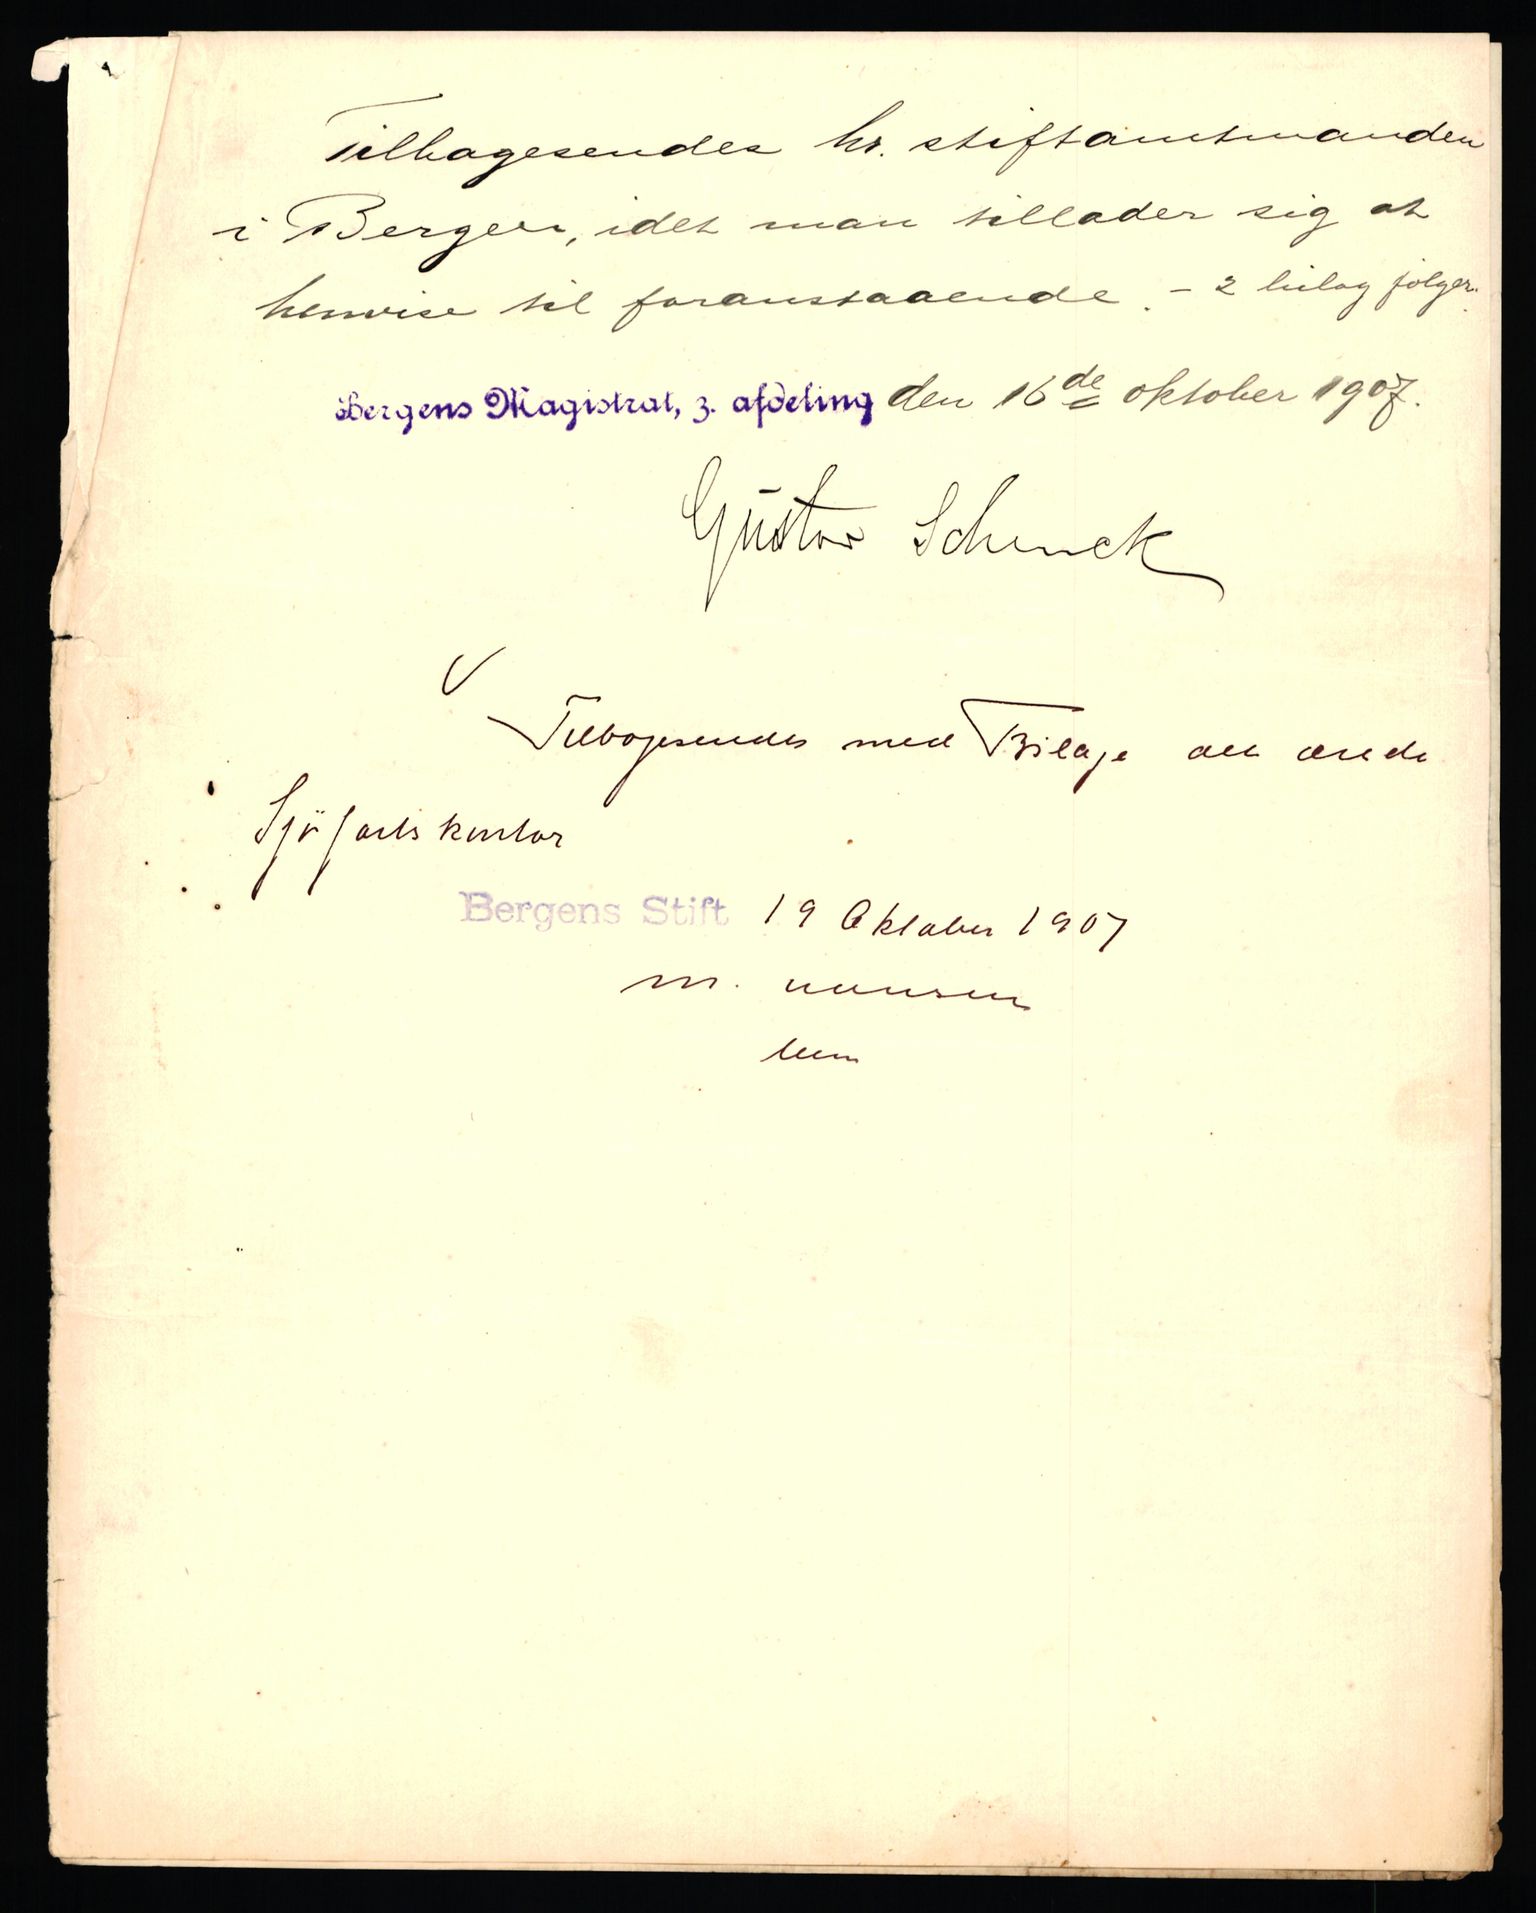 Tilbagesendes hr. stiftamtmanden
i Bergen, idet man tillader sig at
henvise til foranstaaende. - 2 bilag følger.
Bergens Magistrat, 3. afdeling den 16de oktober 1907.
Gustav Schenck
Tilbagesendes med Bilage det ærede
Sjöfartskontor
Bergens Stift 19 Oktober 1907